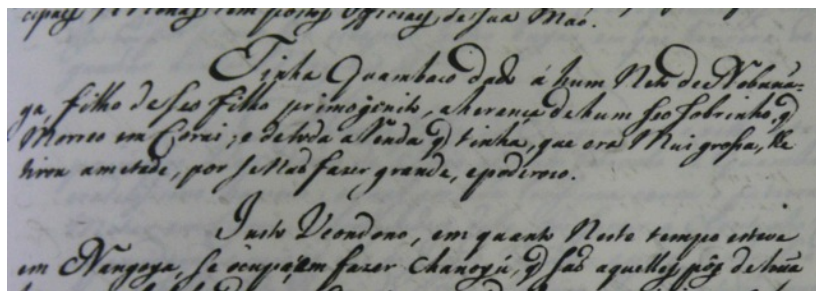 cipaes pessoas com postos officiaes de sua Mão.
Tinha Quambaco dado á hum Neto de Nobuná=
ga, filho de seo filho primogênito, a herança de hum seo sobrinho, q̃
Morreo em Corai; e de toda a renda q̃ tinha, que era Mui grossa, lhe
tirou ametade, por se não fazer grande, e poderoso.
Justo Ucondono, em quanto Neste tempo esteve
em Nangoya, se ocupá em fazer Chanoyú, q̃ são aquelles pós de huã